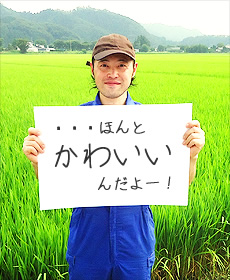 ・・・ほんと
かわいい
んだよー！